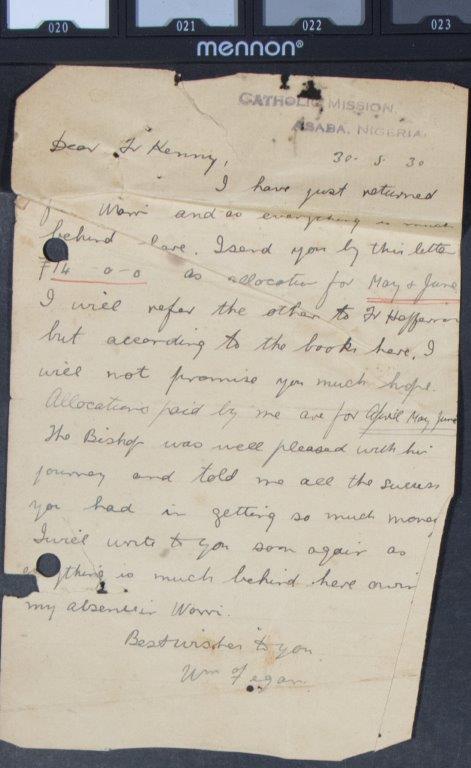 020 021 022 023
mennon®
CATHOLIC MISSION,
ASABA, NIGERIA.
Dear Fr Kenny,
30. 5. 30
I have just returned
Warri and as everything is much
behind here. I send you by this letter
£14-0-0 as allocation for May & June
I will refer the other to Fr Heffernan
but according to the books here, I
will not promise you much hope.
Allocations paid by me are for April May June
The Bishop was well pleased with his
journey and told me all the success
you had in getting so much money
I will write to you soon again as
everything is much behind here owin
my absence in Warri.
Best wishes to you
Wm Fegan